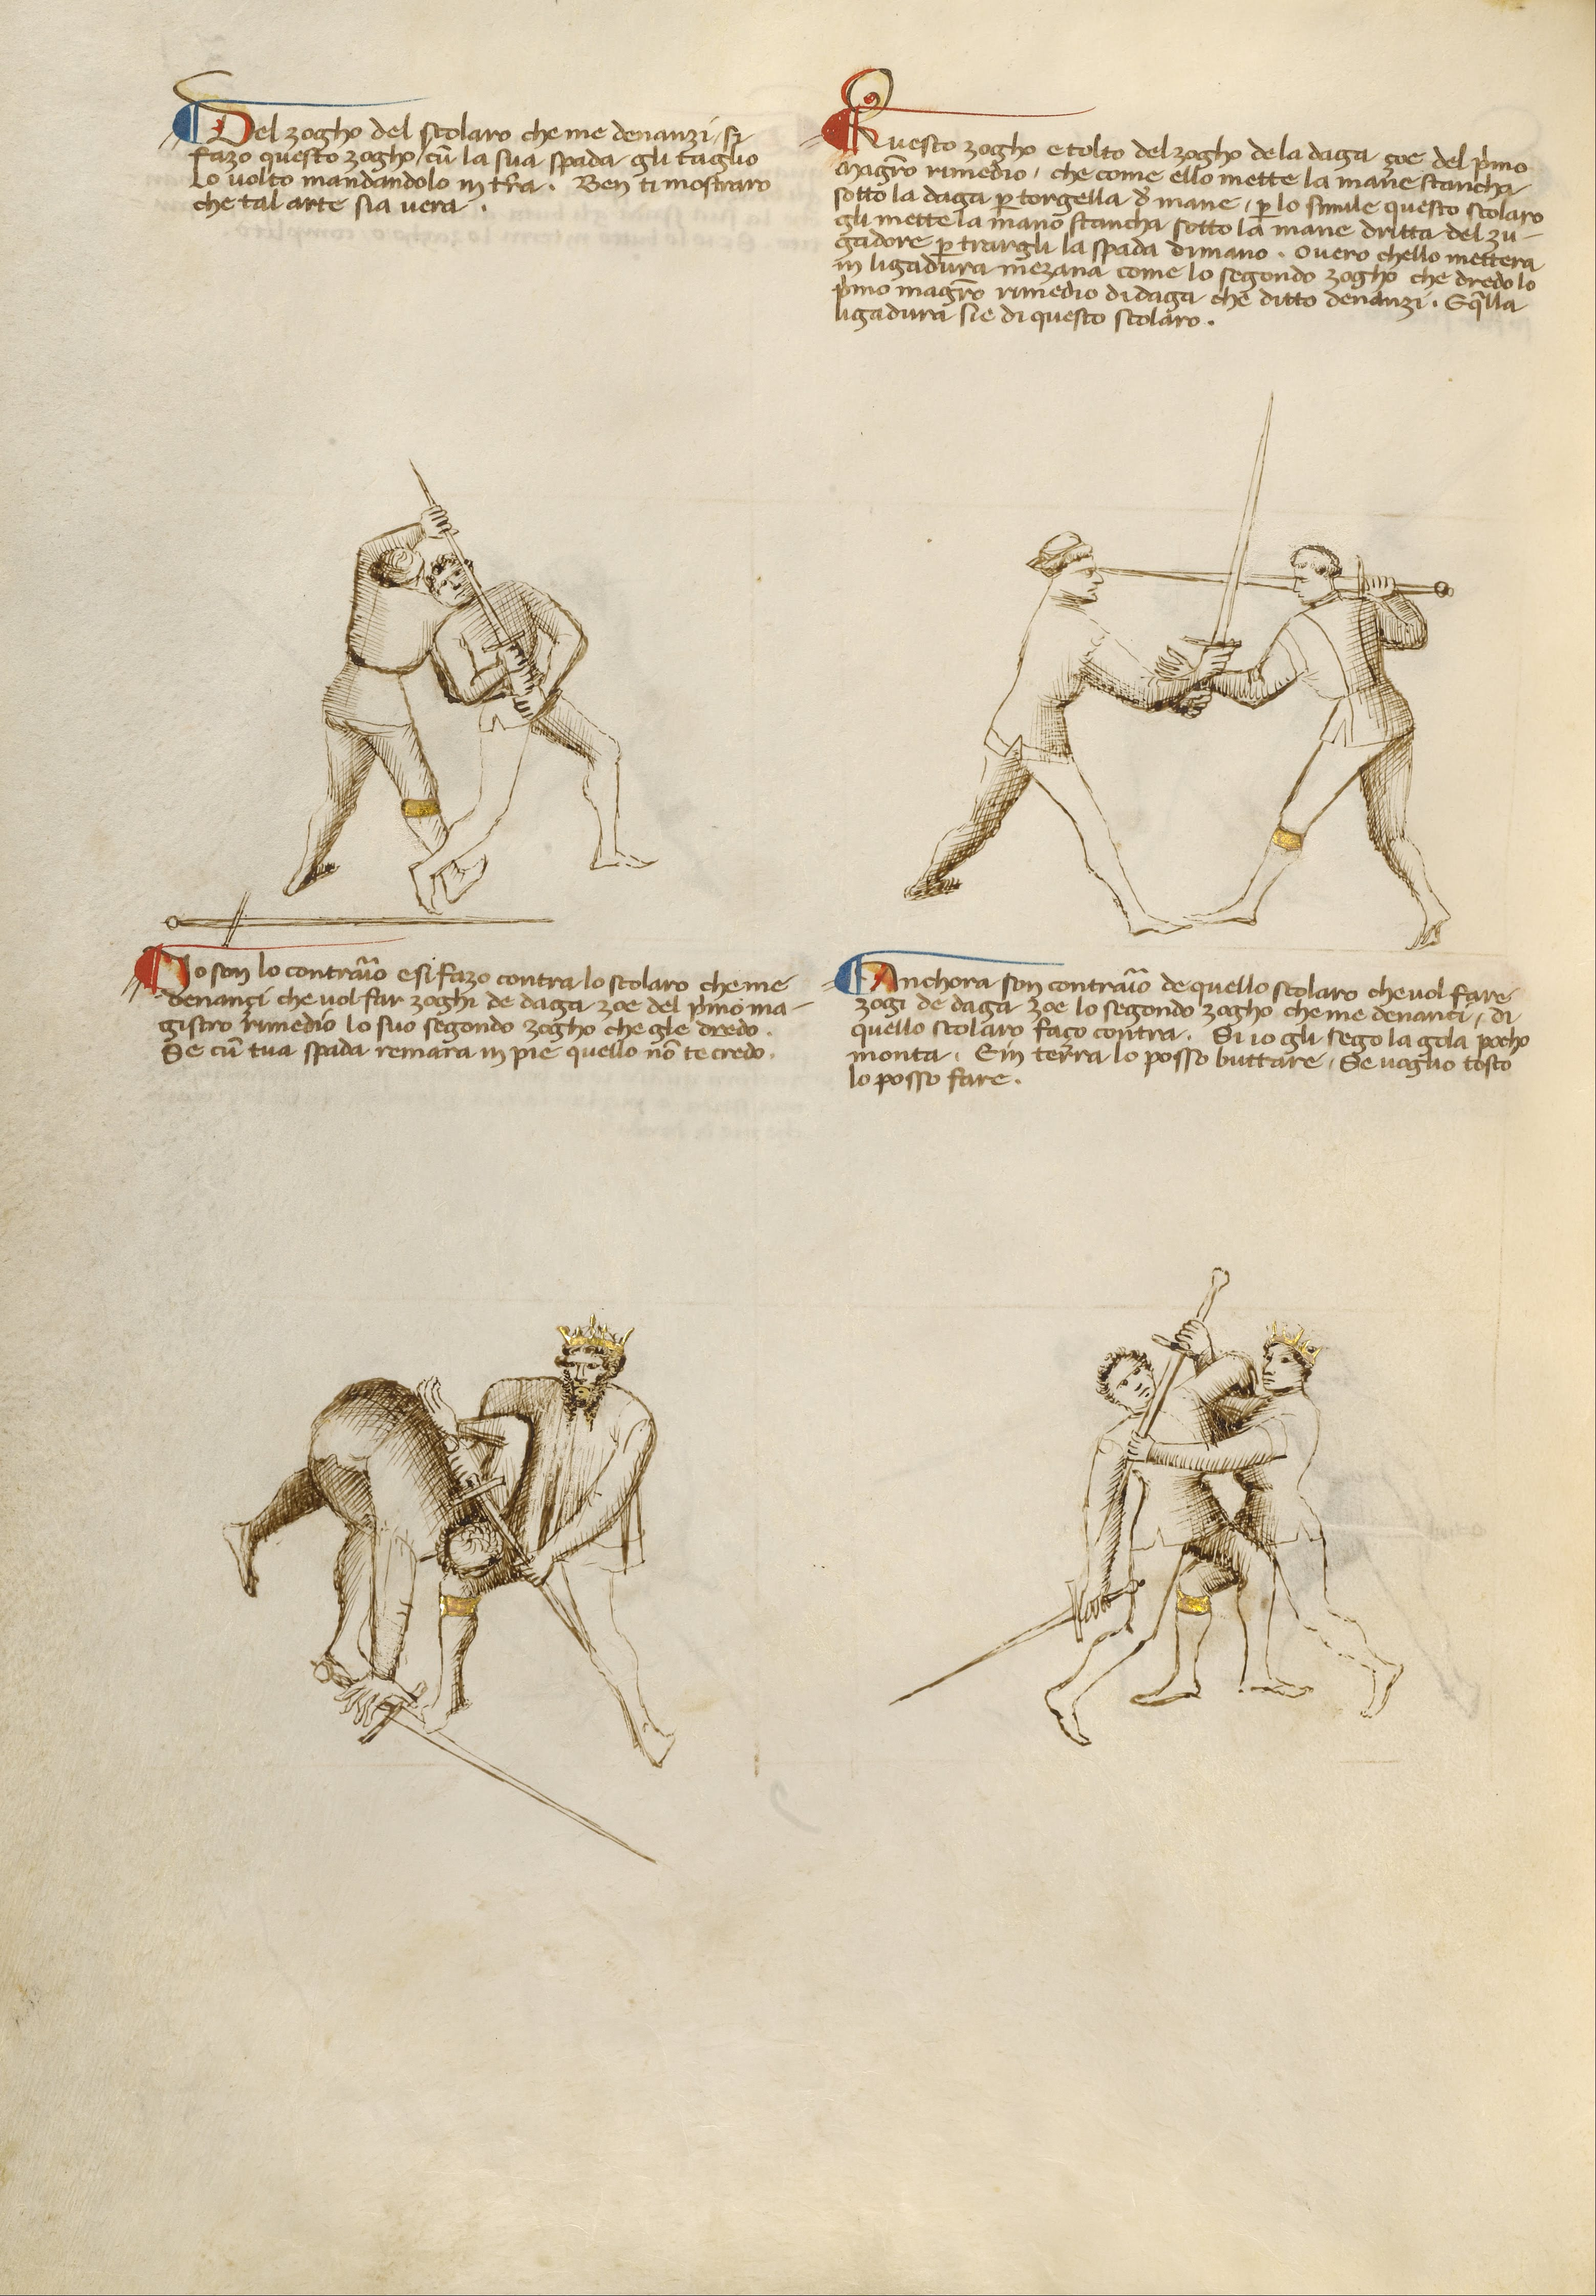 Del zogho del scolaro che me denanzi, si
fazo questo zogho, cū la sua spada gli taglio
lo uolto mandandolo in tr̄a. Ben ti mostraro
che tal arte sia uera.
Questo zogho e tolto del zogho de la daga çoe del p̄mo
magr̄o rimedio, che come ello mette la mane stancha
sotto la daga ꝑ torgella d̄ mane, ꝑ lo simile questo scolaro
gli mette la mano stancha sotto la mane dritta del zu-
gadore ꝑ trargli la spada di mano. Ouero chello mettera
in ligadura mezana come lo segondo zogho che dredo lo
p̄mo magr̄o rimedio di daga che ditto denanzi. E q̄lla
ligadura sie di questo scolaro.
Io son lo contrāio e si fazo contra lo scolaro che me
denançi che uol far zoghi de daga zoe del p̄mo ma-
gistro rimedio lo suo segondo zogho che gle dredo.
Se cū tua spada remara in pie quello nō te credo.
Anchora son contrāio de quello scolaro che uol fare
zogi de daga zoe lo segondo zogho che me denanci, di
quello scolaro faço contra. Si io gli sego la gola pocho
monta. E in terra lo posso buttare, Se uoglio tosto
lo posso fare.